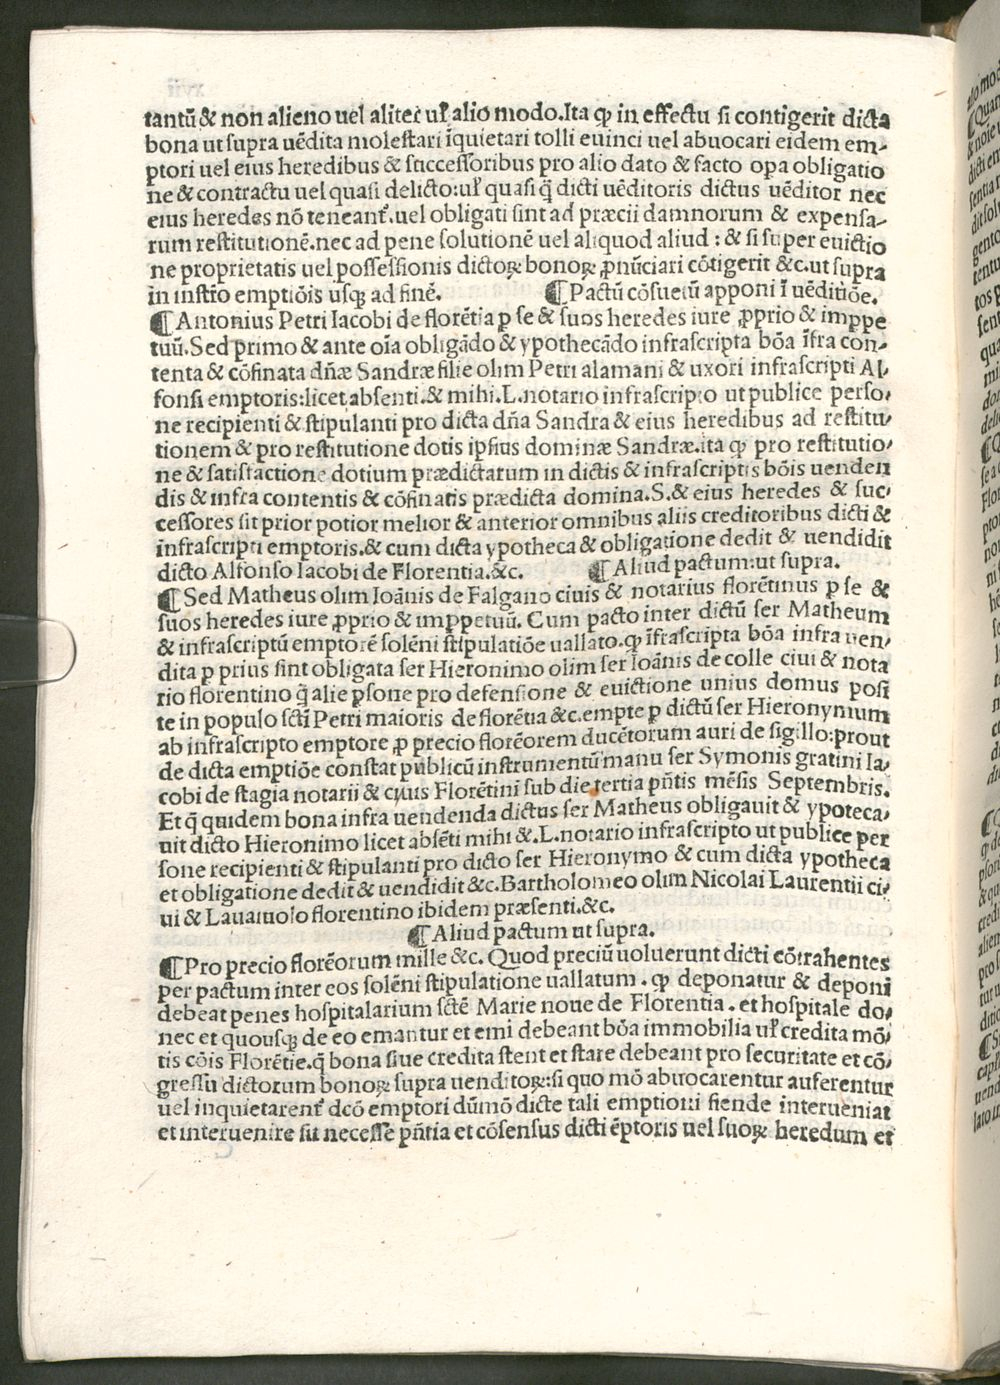 tantũ & non alieno uel aliter ul̃ alio modo. Ita ꝙ in effectu si contigerit dicta
bona ut supra uẽdita molestari ĩquietari tolli euinci uel abuocari eidem em-
ptori uel eius heredibus & successoribus pro alio dato & facto opa obligatio
ne & contractu uel quasi delicto: ul̃ quasi q̃ dicti uẽditoris dictus uẽditor nec
eius heredes nõ teneant᷑. uel obligati sint ad præcii damnorum & expensa-
rum restitutionẽ. nec ad pene solutionẽ uel aliquod aliud : & si super euictio
ne proprietatis uel possessionis dictoꝝ bonoꝝ ꝓnũciari cõtigerit &c. ut supra
in instr̃o emptiõis usqꝫ ad finẽ. ¶ Pactũ cõsuetũ apponi ĩ uẽditiõe.
¶ Antonius Petri Iacobi de florẽtia p se & suos heredes iure ꝓprio & imppe
tuũ. Sed primo & ante oĩa obligãdo & ypothecãdo infrascripta bõa ĩfra con-
tenta & cõfinata dñæ Sandræ filie olim Petri alamani & uxori infrascripti Al,
fonsi emptoris: licet absenti. & mihi. L. notario infrascripto ut publice perso,
ne recipienti & stipulanti pro dicta dña Sandra & eius heredibus ad restitu,
tionem & pro restitutione dotis ipsius dominæ Sandræ. ita ꝙ pro restitutio,
ne & satisfactione dotium prædictarum in dictis & infrascriptis bõis uenden
dis & infra contentis & cõfinatis prædicta domina. S. & eius heredes & suc,
cessores sit prior potior melior & anterior omnibus aliis creditoribus dicti &
infrascripti emptoris. & cum dicta ypotheca & obligatione dedit & uendidit
dicto Alfonso Iacobi de Florentia. &c. ¶ Aliud pactum: ut supra.
¶ Sed Matheus olim Ioãnis de Falgano ciuis & notarius florẽtinus p se &
suos heredes iure ꝓprio & imppetuũ. Cum pacto inter dictũ ser Matheum
& infrascriptũ emptorẽ solẽni stipulatiõe uallato. ꝙ ĩfrascripta bõa infra uen,
dita p prius sint obligata ser Hieronimo olim ser Ioãnis de colle ciui & nota
rio florentino q̃ alie psone pro defensione & euictione unius domus posi
te in populo scti Petri maioris de florẽtia &c. empte p dictũ ser Hieronymum
ab infrascripto emptore ꝓ precio florẽorem ducẽtorum auri de sigillo: prout
de dicta emptiõe constat publicũ instrumentũ manu ser Symonis gratini Ia,
cobi de stagia notarii & ciuis Florẽtini sub die tertia pñtis mẽsis Septembris.
Et q̃ quidem bona infra uendenda dictus ser Matheus obligauit & ypoteca,
uit dicto Hieronimo licet absẽti mihi &. L. notario infrascripto ut publice per
sone recipienti & stipulanti pro dicto ser Hieronymo & cum dicta ypotheca
et obligatione dedit & uendidit &c. Bartholomeo olim Nicolai Laurentii ci,
ui & Lauaiuolo florentino ibidem præsenti. &c.
¶ Aliud pactum ut supra.
¶ Pro precio florẽorum mille &c. Quod preciũ uoluerunt dicti cõtrahentes
per pactum inter eos solẽni stipulatione uallatum . ꝙ deponatur & deponi
debeat penes hospitalarium sctẽ Marie noue de Florentia . et hospitale do,
nec et quousqꝫ de eo emantur et emi debeant bõa immobilia ul̃ credita mõ,
tis cõis Florẽtie. q̃ bona siue credita stent et stare debeant pro securitate et cõ,
gressu dictorum bonoꝝ supra uenditoꝝ: si quo mõ abuocarentur auferentur
uel inquietarent᷑ dcõ emptori dũmõ dicte tali emptioni fiende interueniat
et interuenire sit necesse pñtia et cõsensus dicti ẽptoris uel suoꝝ heredum et